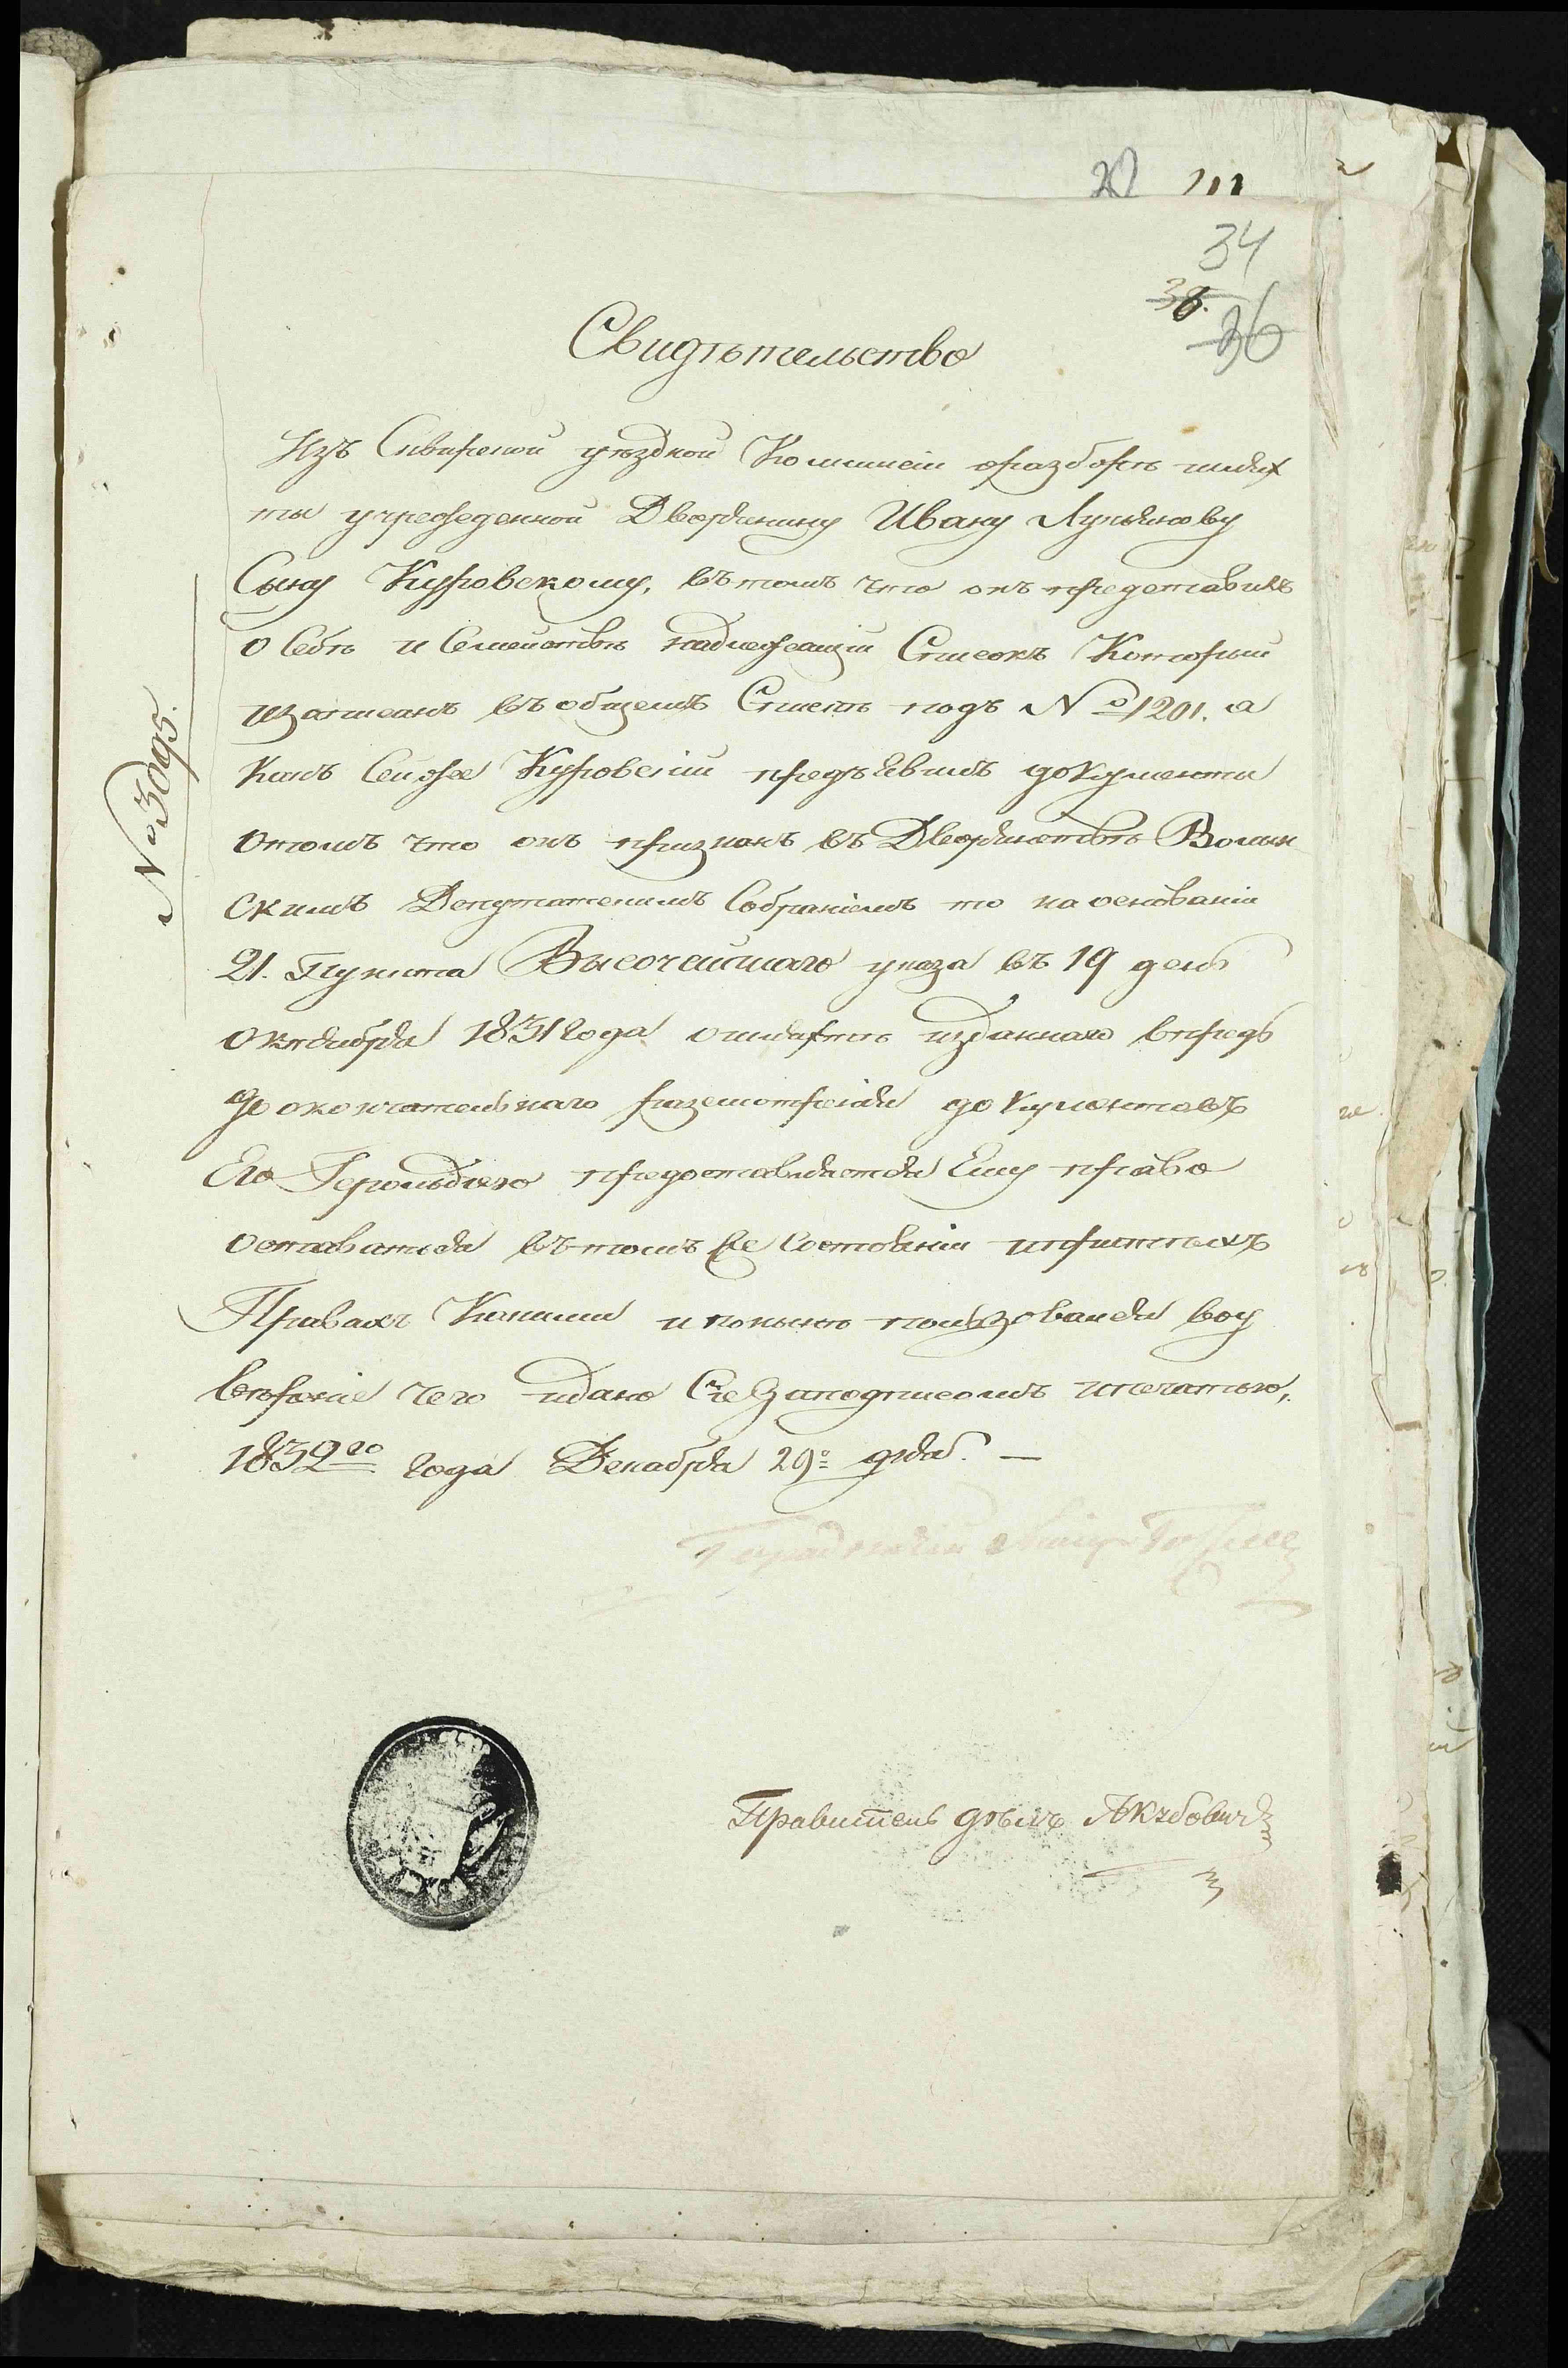 34
36
Свидѣтельство
Изъ Сквирской уѣздной Коммисіи оразборѣ шлях
ты учрежденной Дворянину Ивану Лукьянову
Сыну Куровскому, вътомъ что онъ представилъ
о Себѣ и Семействѣ надлежащій Списокъ Который
изаписанъ въобщемъ Спискѣ подъ № 1201. а
какъ Сейже Куровскій предъявилъ документы
отомъ что онъ признанъ въ Дворянствѣ Волын
скимъ Депутатскимъ Собраніемъ то на основаніи
21. Пункта Высочайшаго указа въ 19 день
октября 1831 года ошляхтѣ изданнаго впредь
до окончательнаго разсмотренія документовъ
Его Герольдіею предоставляется Ему право
оставаться вътомъ же Состояніи ипритѣхъ
Правахъ Какими и понынѣ пользовался воу
вѣреніе чего идано Сіе Заподписомъ ипечатью,
1832го года Декабря 29о дня. —
№ 3095.
Городничій Маіоръ
Правитель дѣлъ Якубовичъ